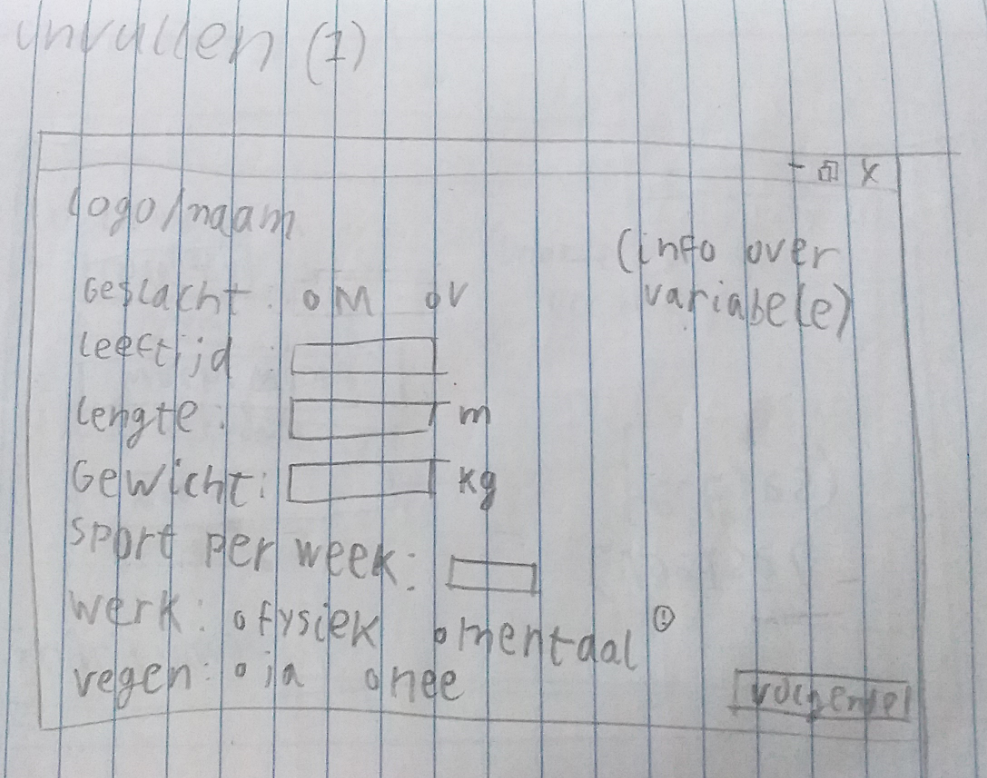 invullen (1)
logo/naam
(info over
variabele)
Geslacht: o M o V
leeftijd :
lengte: m
Gewicht: kg
sport per week:
werk: o fysiek o mentaal
vegen: o ja o nee